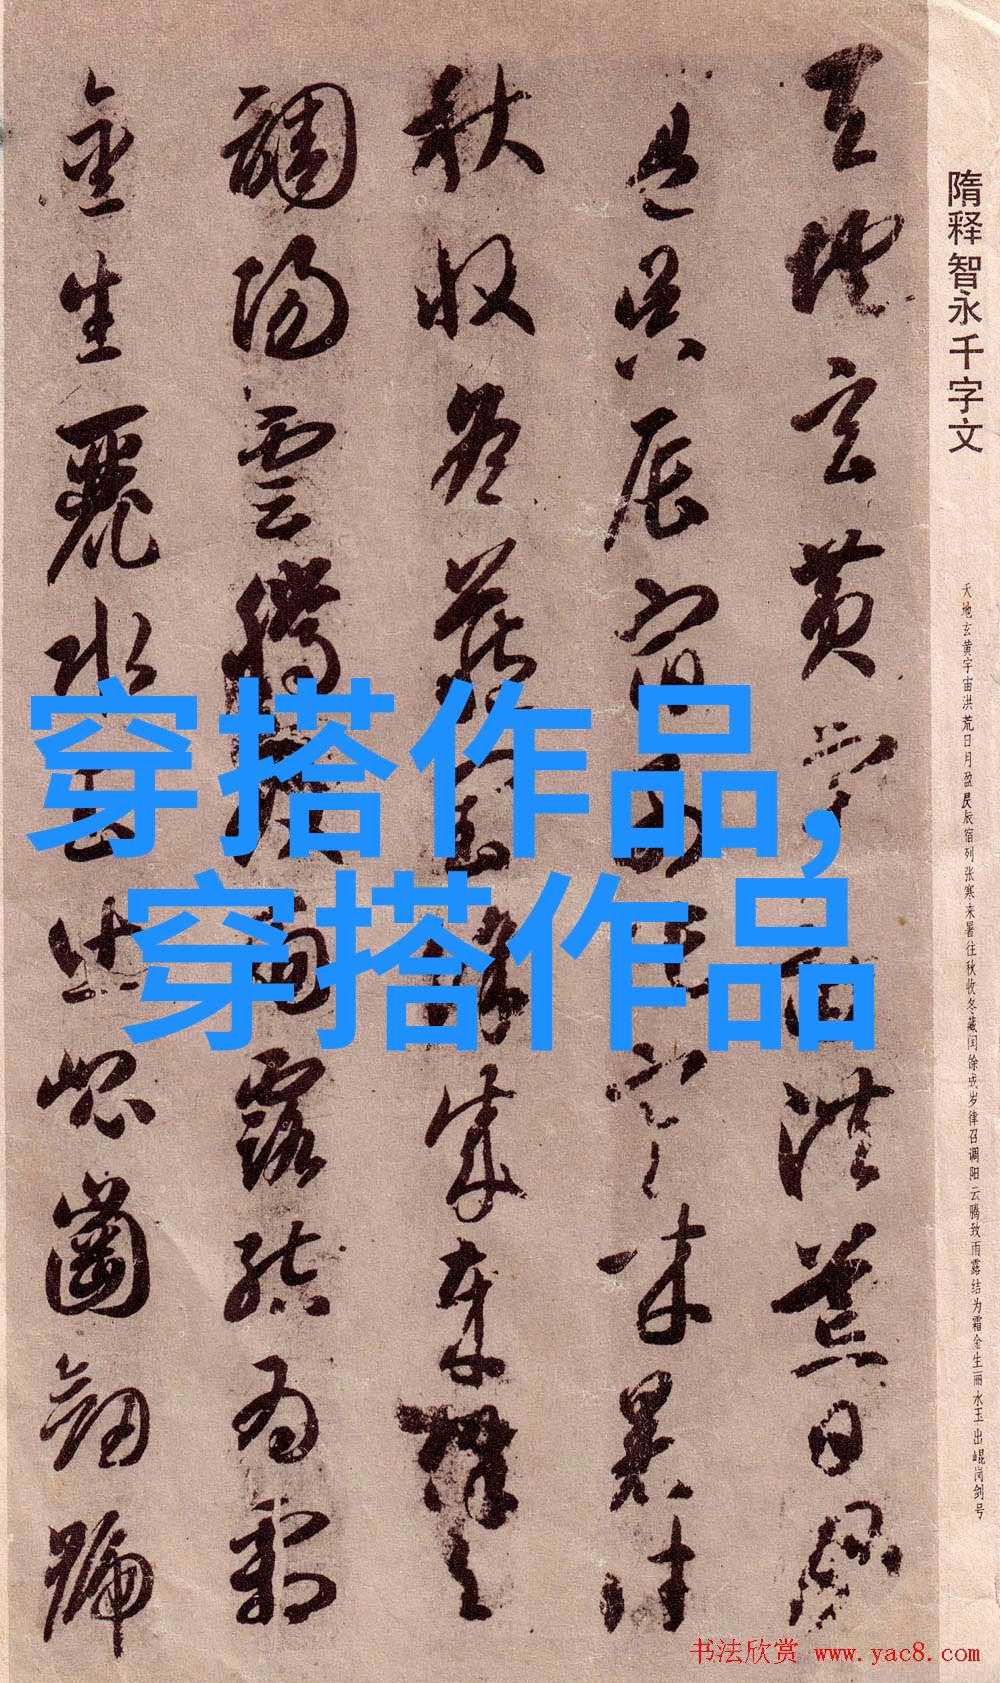 隋释智永千字文
天地玄黄宇宙洪荒日月盈昃辰宿列张寒来暑往秋收冬藏闰馀成岁律召调阳云腾致雨露结为霜金生丽水玉出崐岗剑号
天地玄黄宇宙洪荒日月
盈昃辰宿列張寒来暑往
秋收冬藏閏餘成歲律召
調陽雲騰致雨露結為霜
金生麗水玉出崐崗劒號
穿搭作品,
穿搭作品
书法欣赏 www.yac8.com